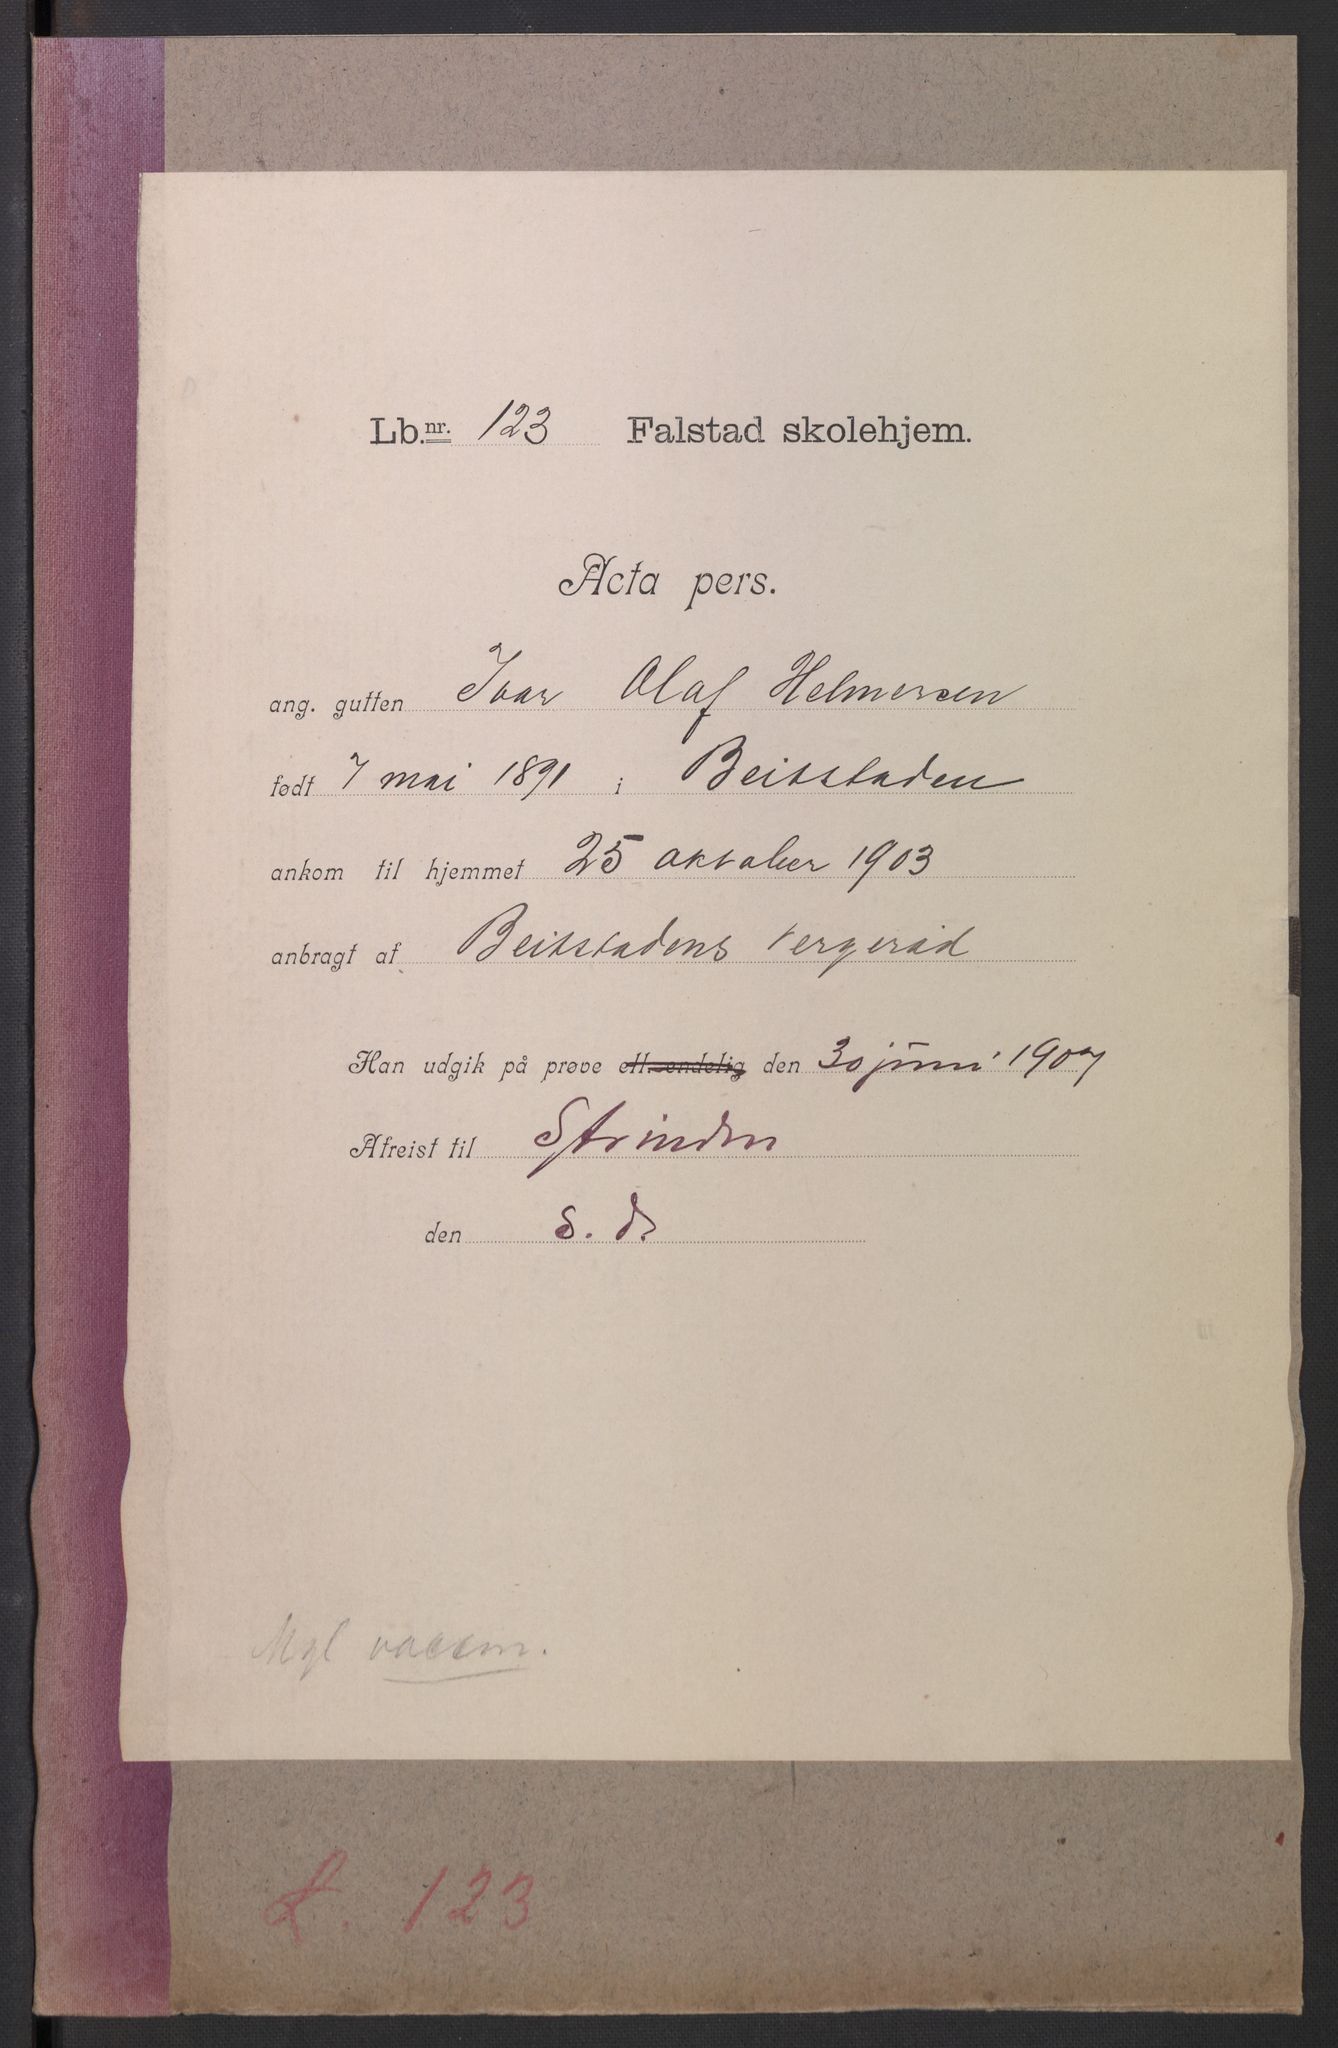 Lb.nr. 123 Falstad skolehjem.
Acta pers.
ang. gutten Ivar Olaf Helmersen
født 7 mai 1891 i Beitstaden
ankom til hjemmet 25 oktober 1903
anbragt af Beitstadens vergeråd
Han udgik på prøve ell. endelig den 30 juni 1907
Afreist til Strinden
den s. d.
Mgl vaccm.
L. 123